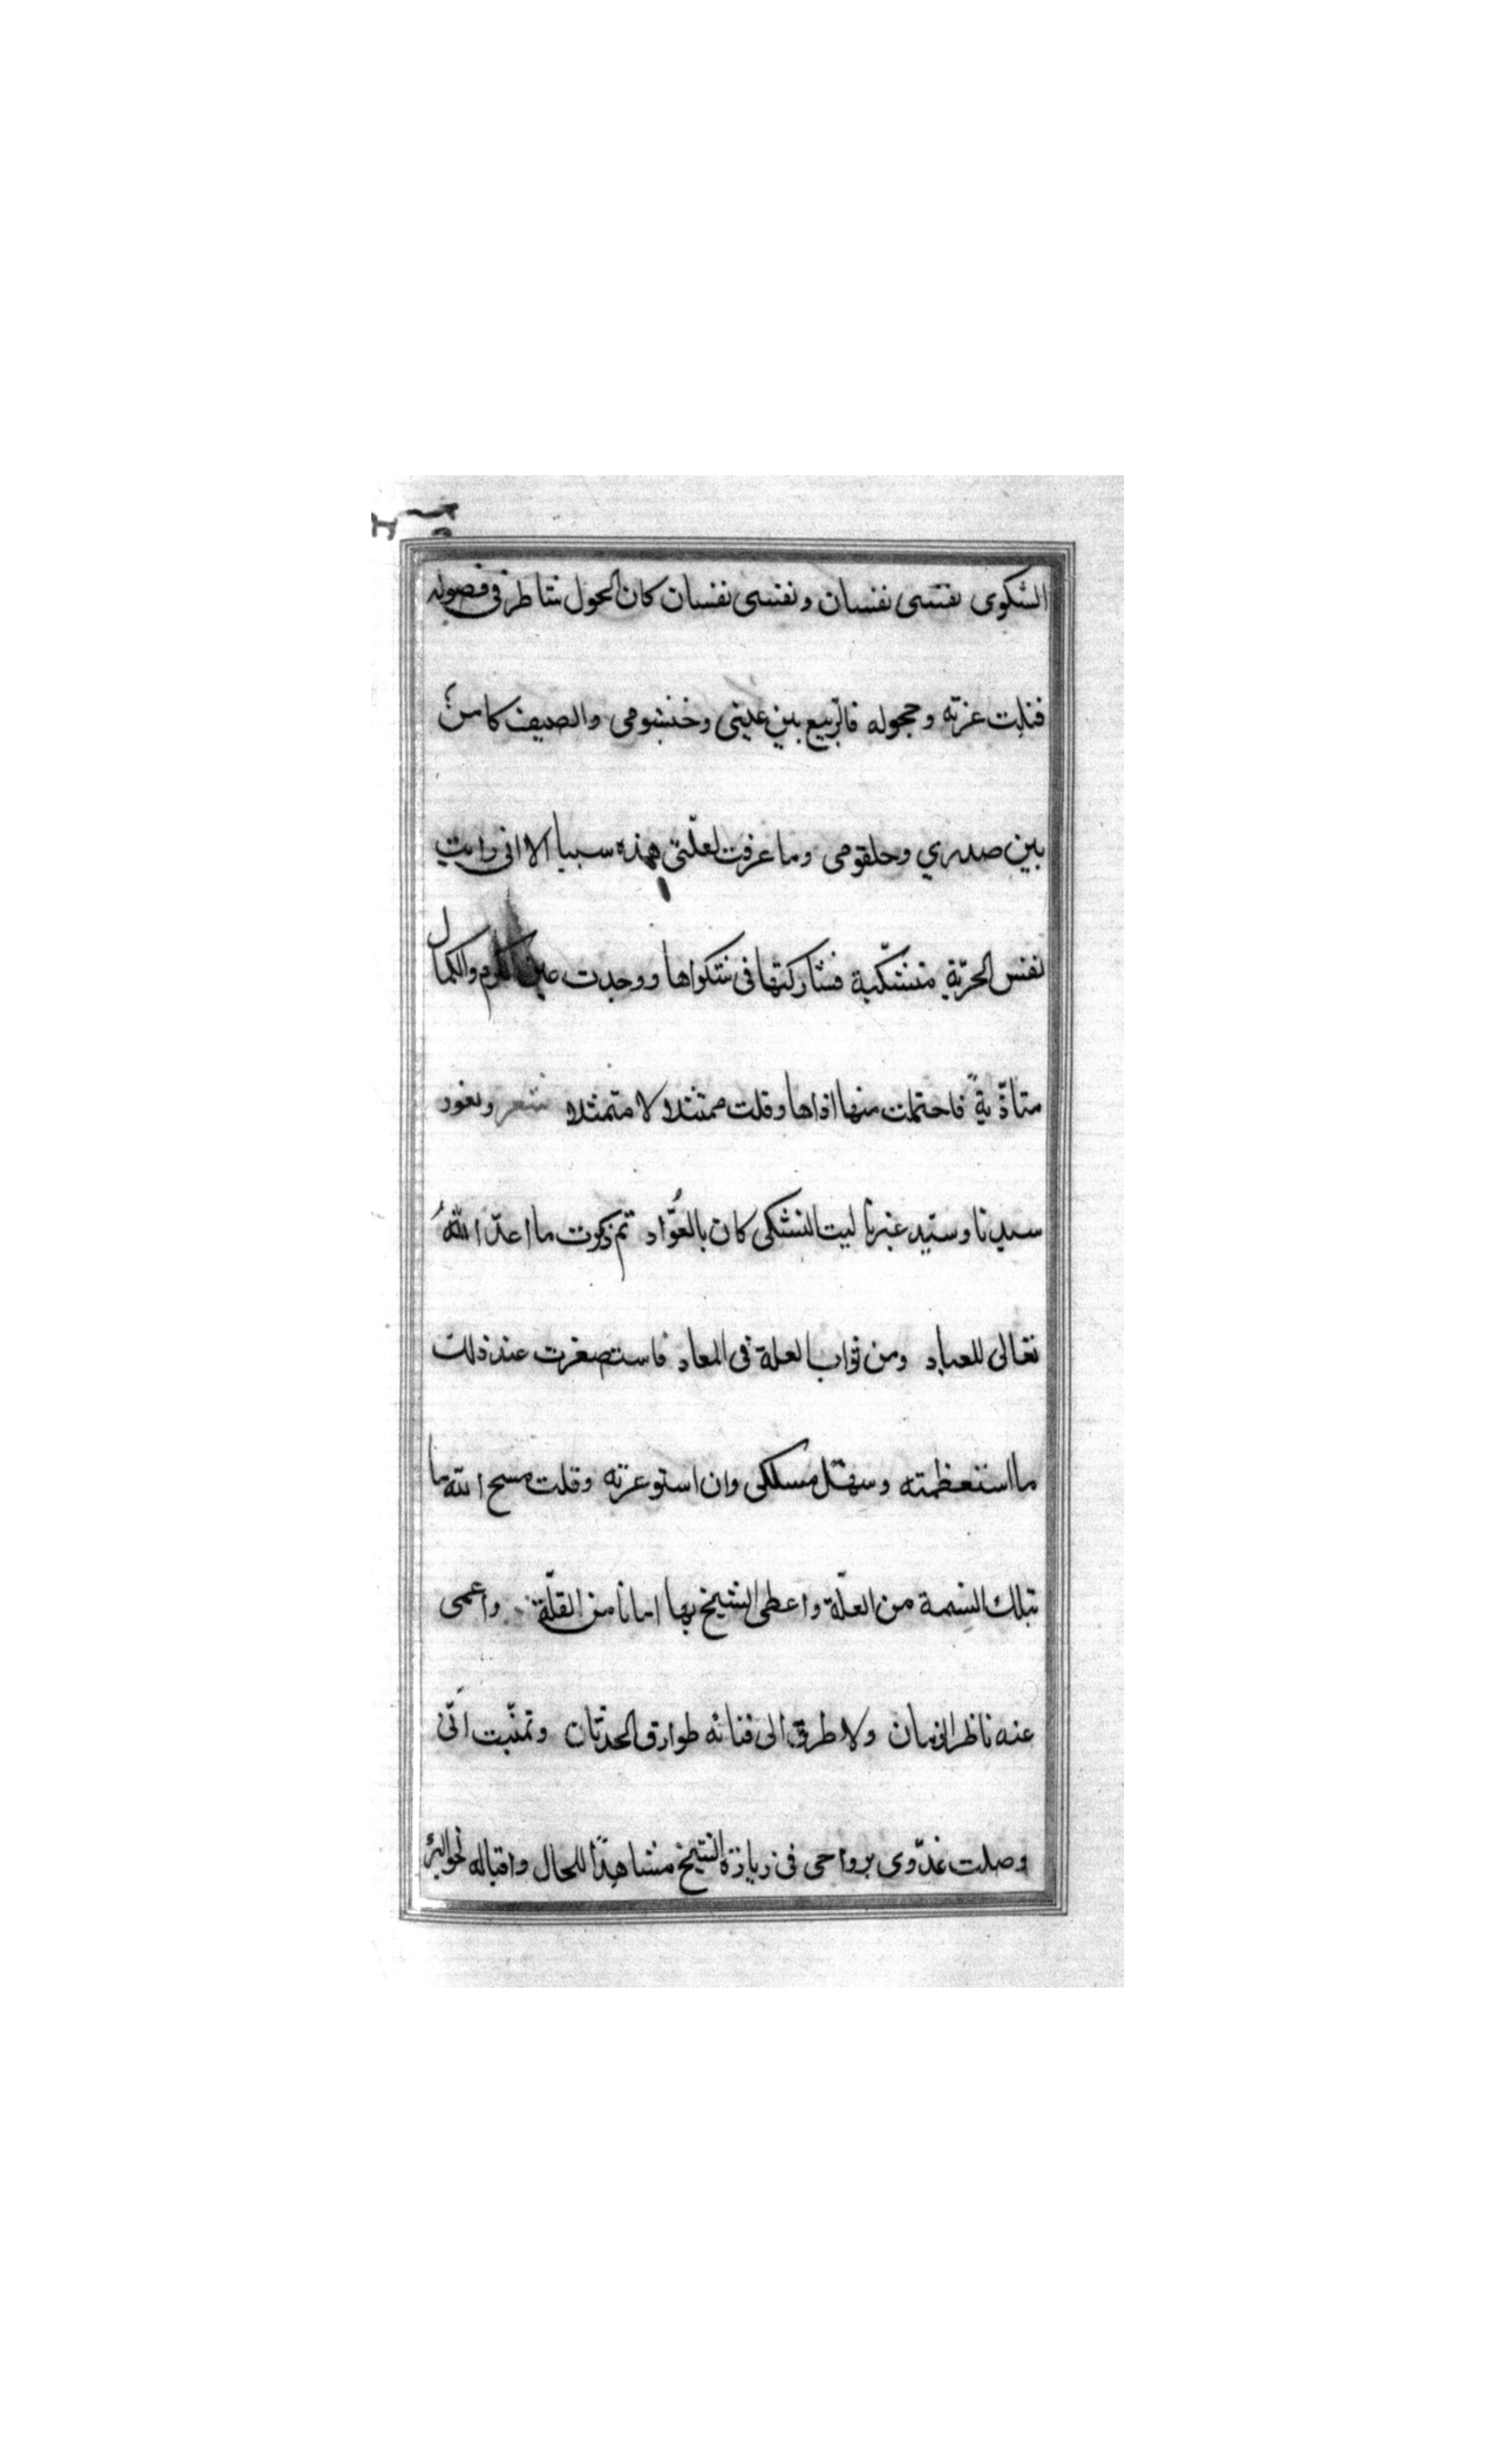 الشكوى نفسى نفسان ونفسى نفسان كان الحول شاطر في فصوله
فنلت غرته وحجوله فالربيع بين عيني وخنشومي والصيف كامن
بين صدري وحلقومى وما عرفت لعلّتى هذه سببا الا انى رايت
نفس الحرّية متشكّية فشاركتها فى شكواها ووجدت عين الكرم والكمال
متاذّيةً فاحتملت منها اذاها وقلت ممتثلا لا متمثلا شعر ونعود
سيدنا وسيّد غيرنا ليت التشكى كان بالعُوّاد ثم ذكرت ما اعدّ اللهُ
تعالى للعباد ومن ثواب العلة فى المعاد فاستصغرت عند ذلك
ما استعظمته وسهّل مسلكى وان استوعرته وقلت مسح الله ما
بتلك النسمة من العلّة واعطى الشيخ بها امانا من القلّة واعمى
عنه ناظر الزمان ولا طرق الى فنائه طوارق الحدثان وتمنّيت انّى
وصلت غدّوى برواحى فى زيارة الشيخ مشاهدًا للحال واقباله نحو البرء